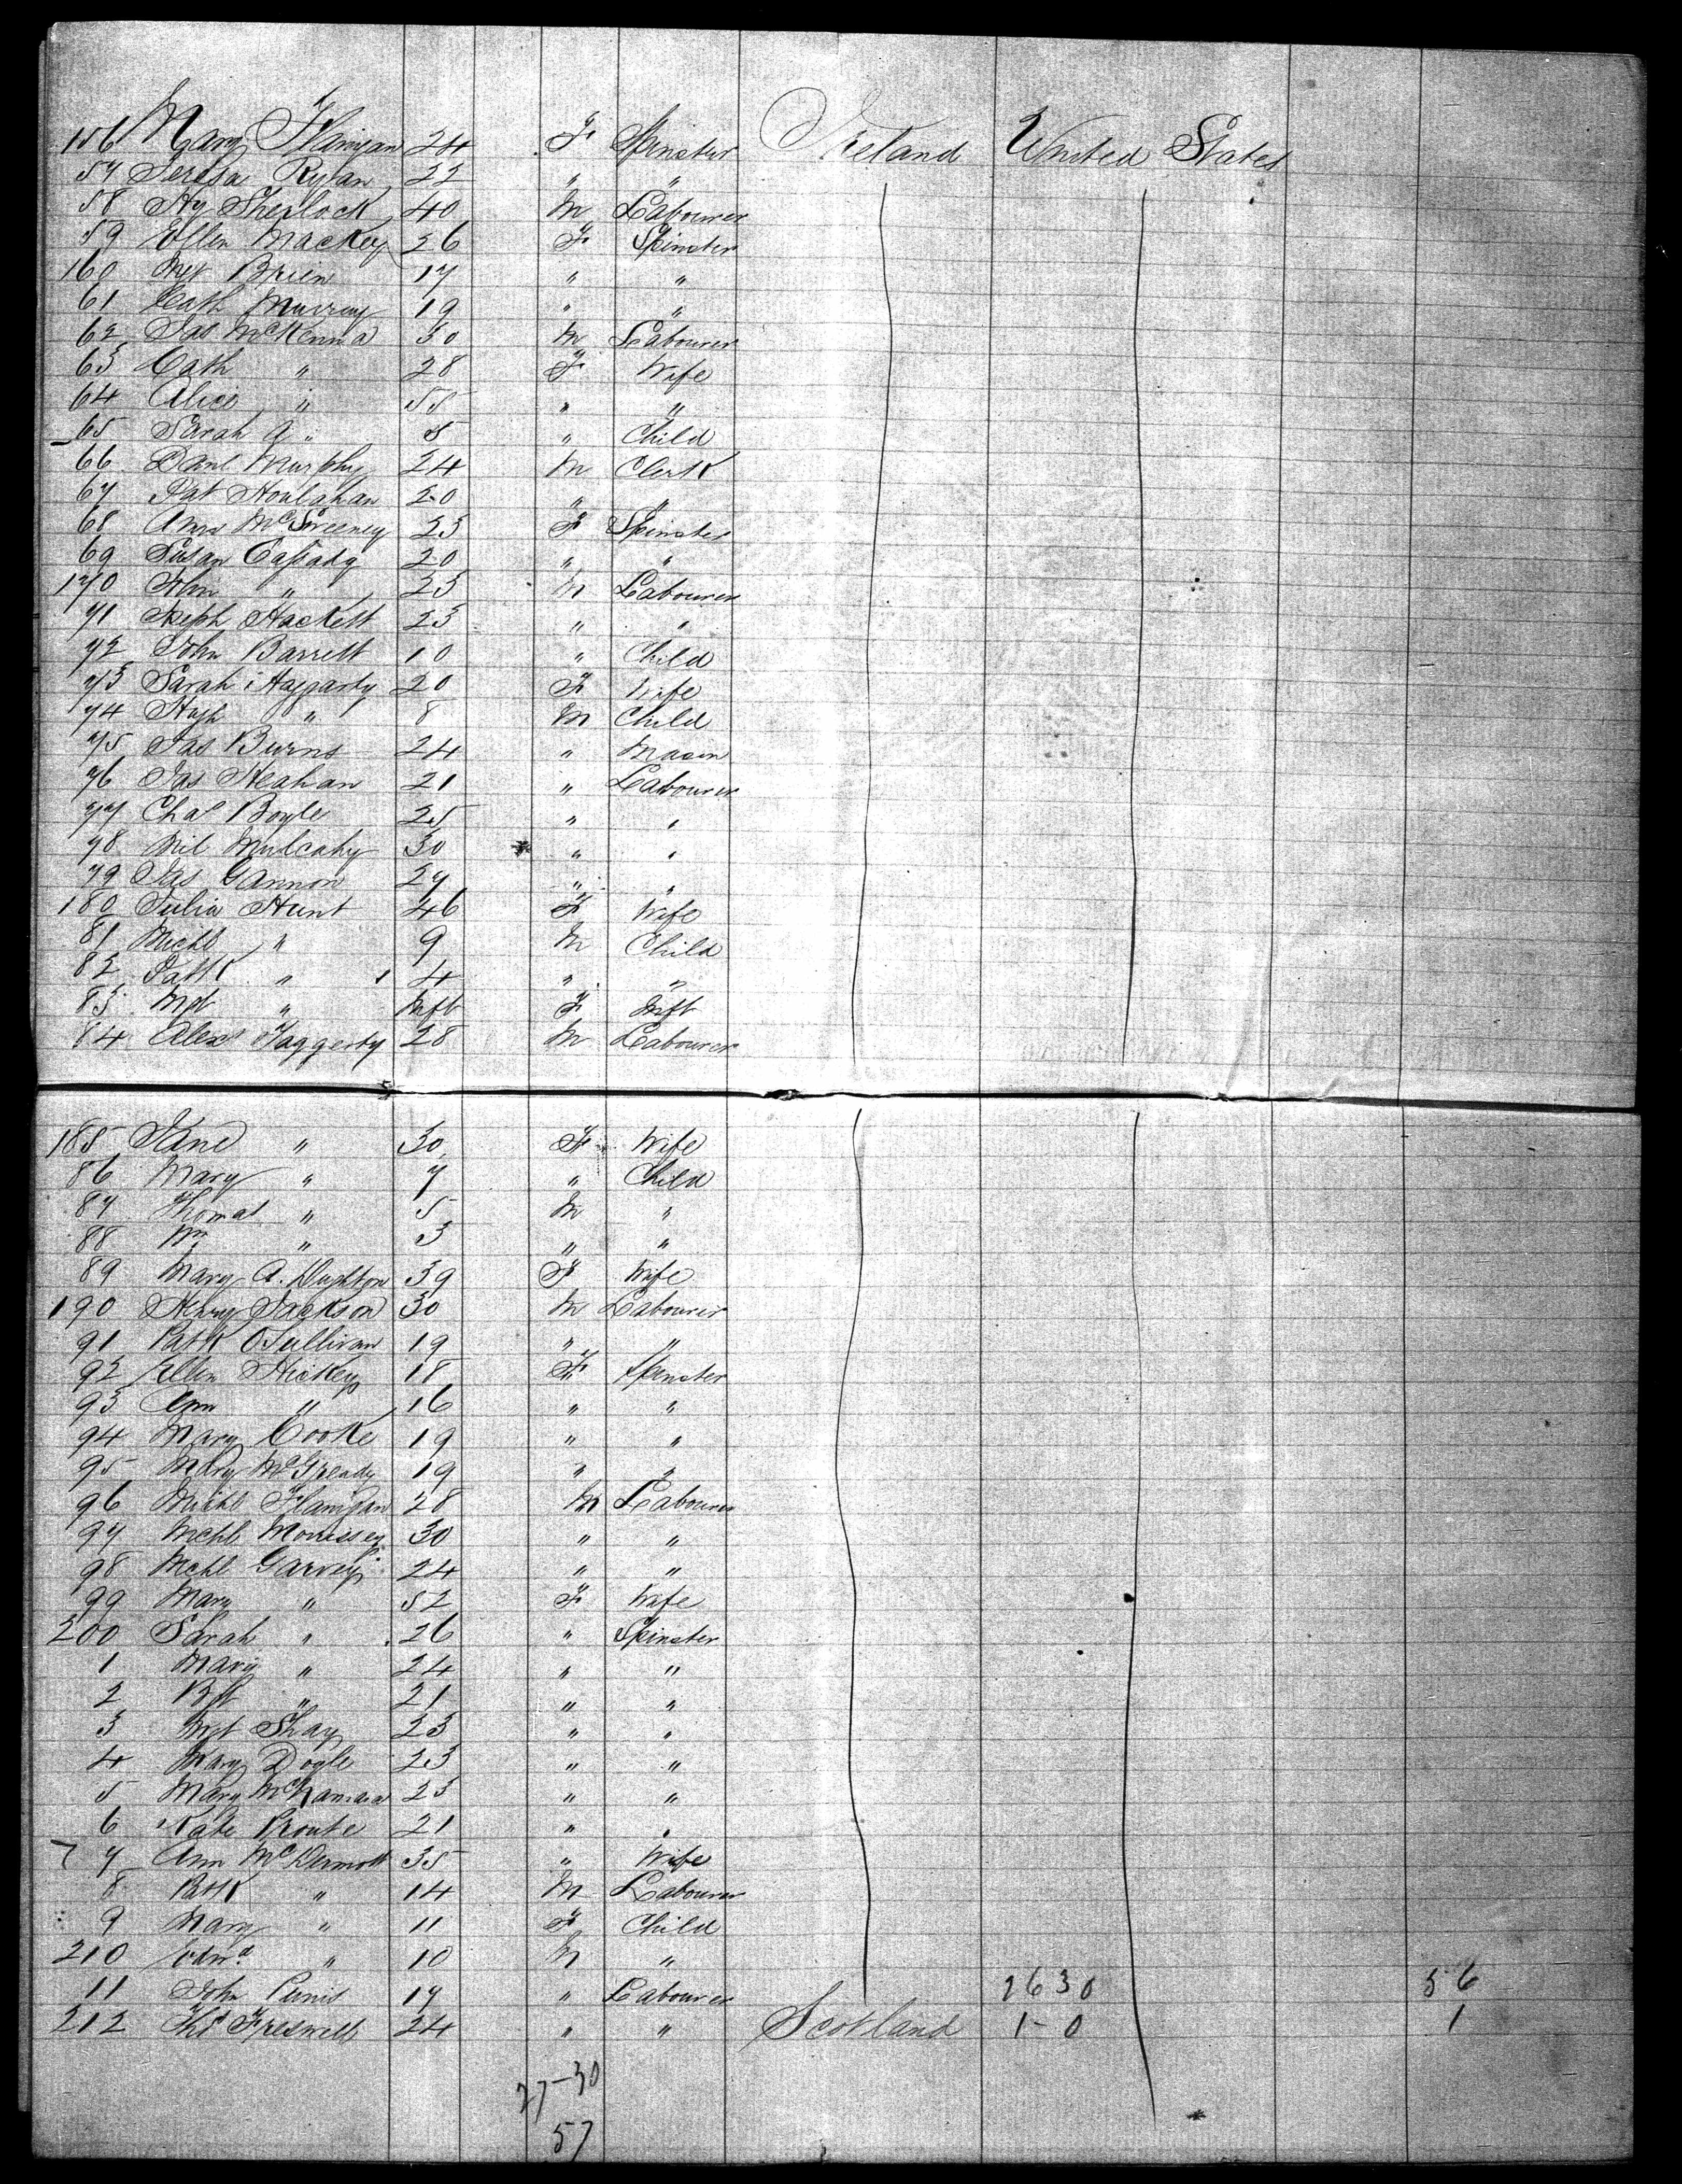 156 Mary Flanigan 24 F Spinster Ireland United States
57 Teresa Ryan 22 " "
58 Hy Sherlock 40 M Labourer
59 Ellen Mackey 26 F Spinster
160 Mgt Brien 17 " "
61 Cath Murray 19 " "
62 Jas McKenna 30 M Labourer
63 Cath " 28 F Wife
64 Alice " 55 " "
65 Sarah A " 5 " Child
66 Danl Murphy 24 M Clerk
67 Pat Houlahan 20 " "
68 Ann McSweeney 23 F Spinster
69 Susan Cassady 20 " "
170 " 23 M Labourer
71 Joseph Hackett 23 " "
72 John Barrett 10 " Child
73 Sarah Haggarty 20 F Wife
74 Hugh " 8 M Child
75 Jas Burns 24 " Mason
76 Jas Heahan 21 " Labourer
77 Chas Boyle 25 " "
78 Mil Mulcahy 30 " "
79 Jas Gannon 27 " "
180 Julia Hunt 46 F Wife
81 Michl " 9 M Child
82 Patk " 4 " "
83 Mgt " Inft F Inft
84 Alexr Faggerty 28 M Labourer
185 Jane " 30 F Wife
86 Mary " 7 " Child
87 Thomas " 5 M "
88 Wm " 3 " "
89 Mary A. Dughton 39 F Wife
190 Henry Jackson 30 M Labourer
91 Patk OSullivan 19 " "
92 Ellen Hickey 18 F Spinster
93 Ann " 16 " "
94 Mary Cooke 19 " "
95 Mary McGready 19 " "
96 Michl Flanigan 28 M Labourer
97 Michl Morrissey 30 " "
98 Michl Garvey 24 " "
99 Mary " 52 F Wife
200 Sarah " 26 " Spinster
1 Mary " 24 " "
2 Bgt " 21 " "
3 Mgt Shay 23 " "
4 Mary Doyle 23 " "
5 Mary McNamara 23 " "
6 Kate Proute 21 " "
7 Ann McDermott 35 " Wife
8 Patk " 14 M Labourer
9 Mary " 11 F Child
210 Edwd " 10 M "
11 John 17 " Labourer 2630 56
212 Ths Freswell 24 " " Scotland 1-0 1
27-30
57